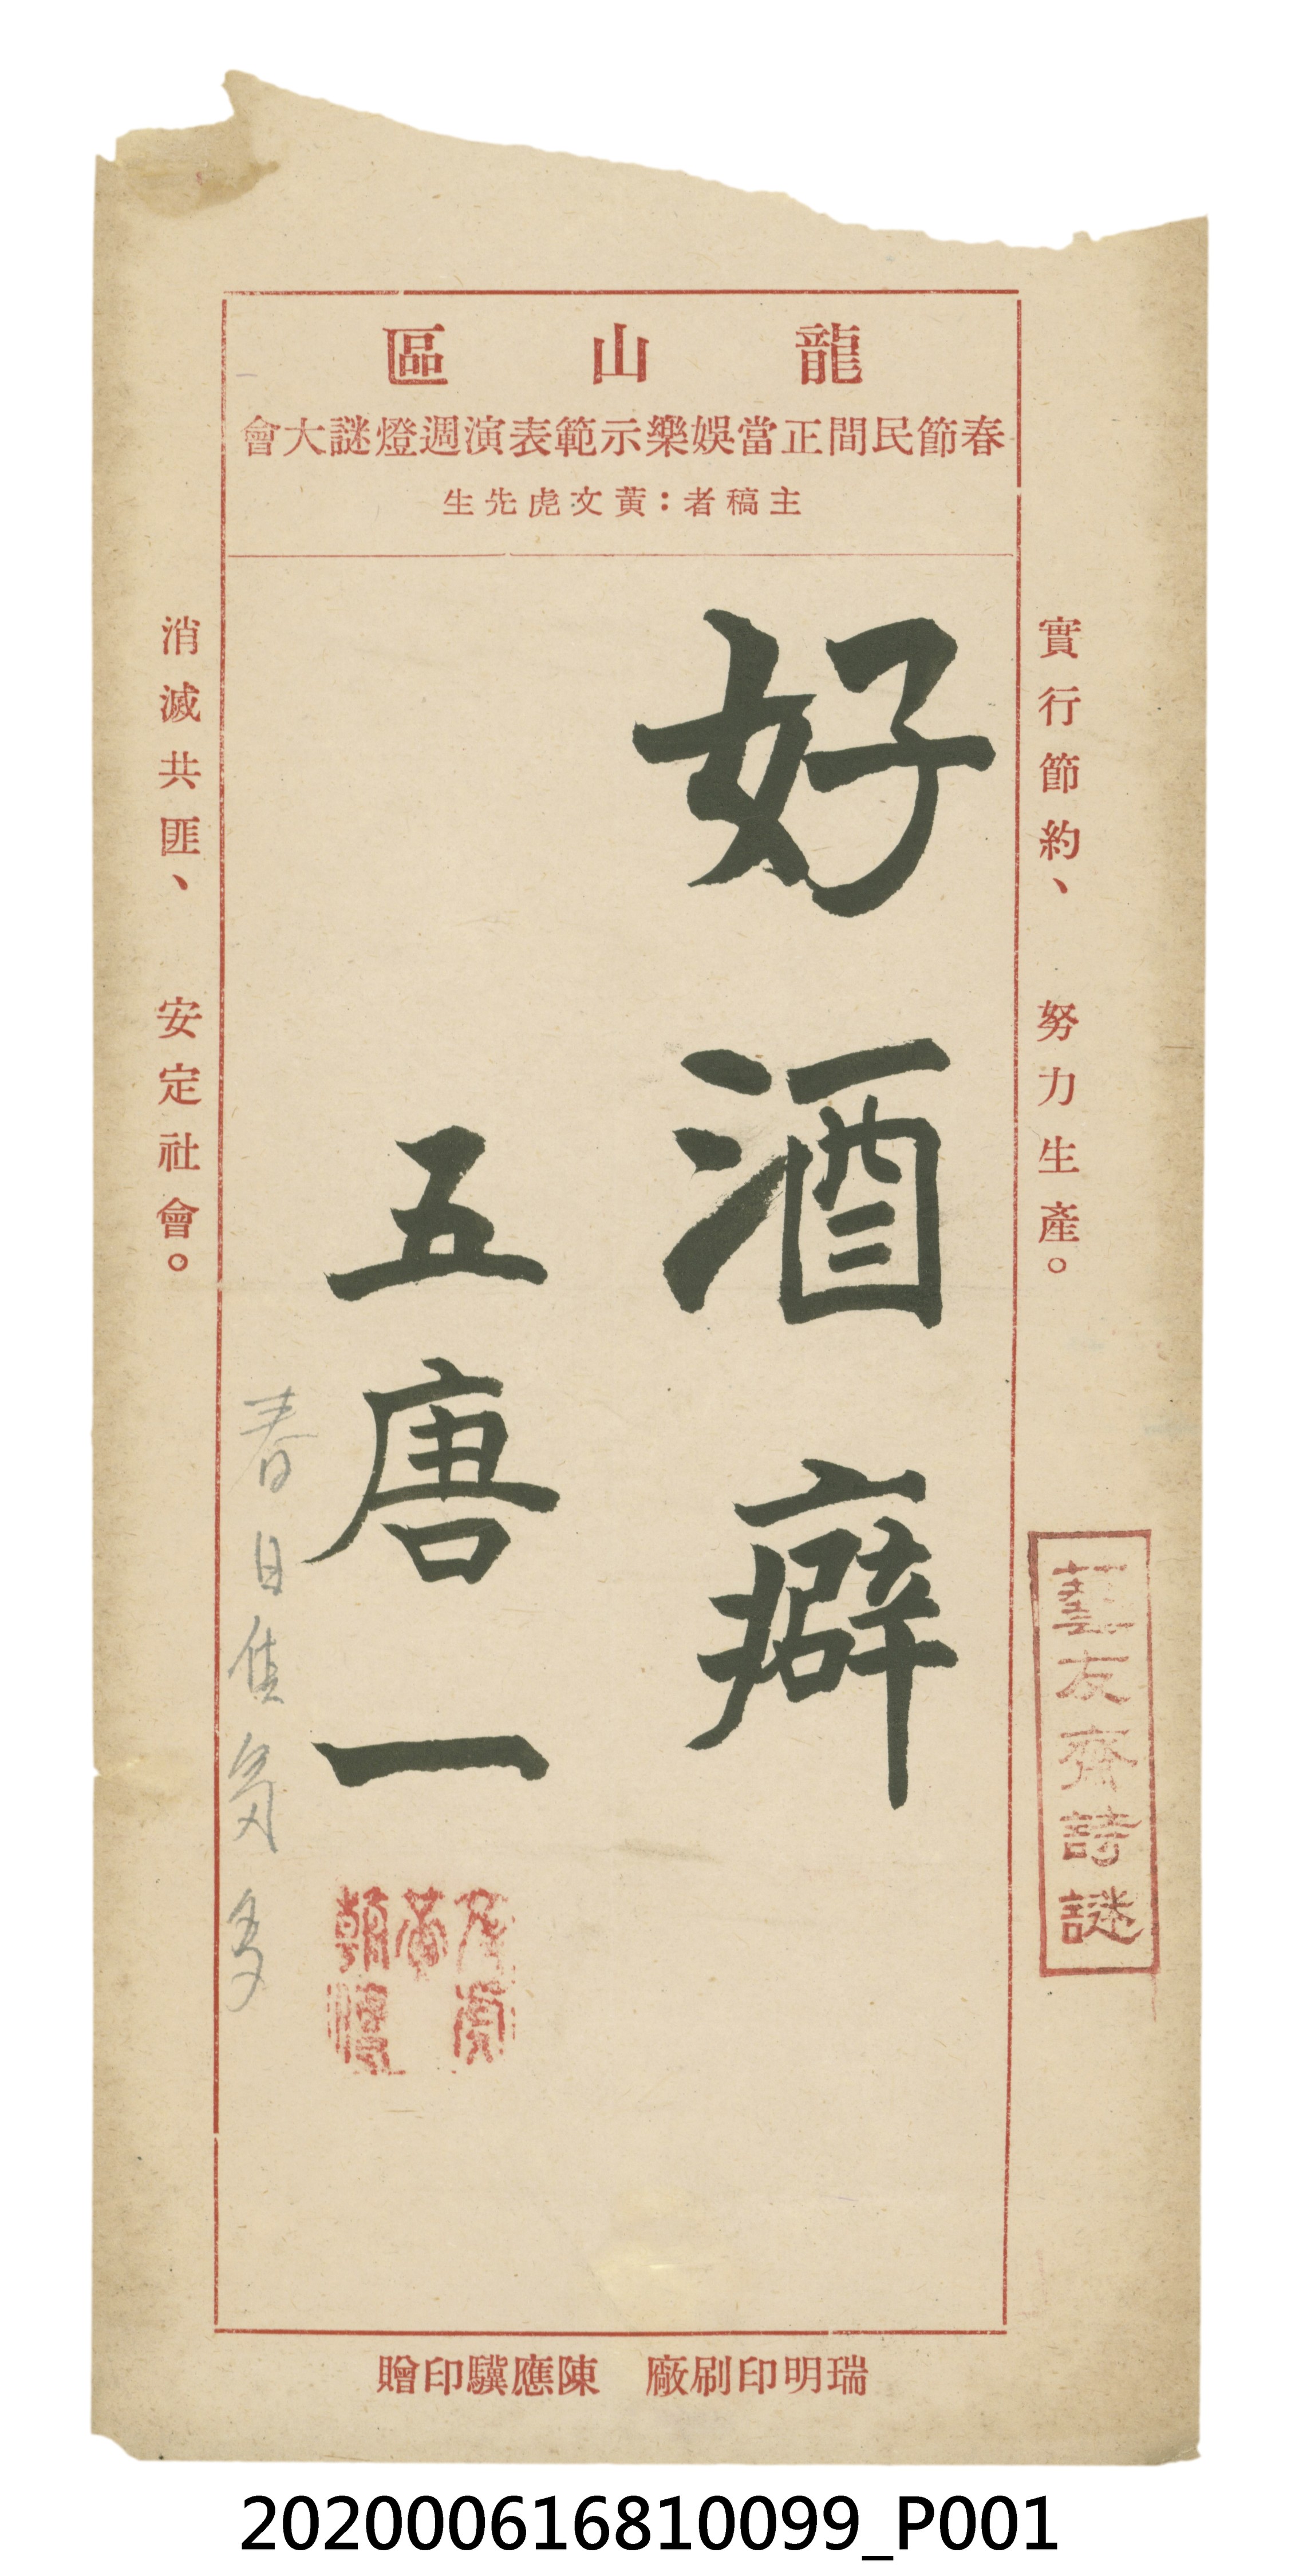 龍山區
春節民間正當娛樂示範表演週燈謎大會
主稿者：黃文虎先生
實行節約、努力生產。
好酒癖
五唐一
春日隹
多
消滅共匪、安定社會。
藝友齋詩謎
瑞明印刷廠 陳應驥印贈
202000616810099_P001